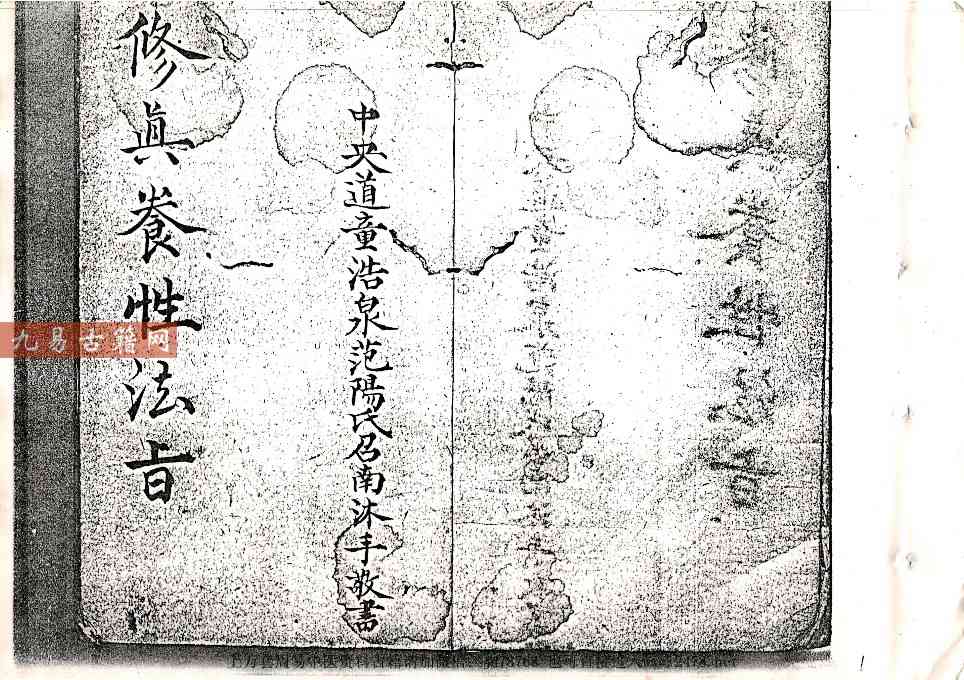 中央道童浩泉范陽氏召南沐手敬書
修真養性法旨
九易古籍网